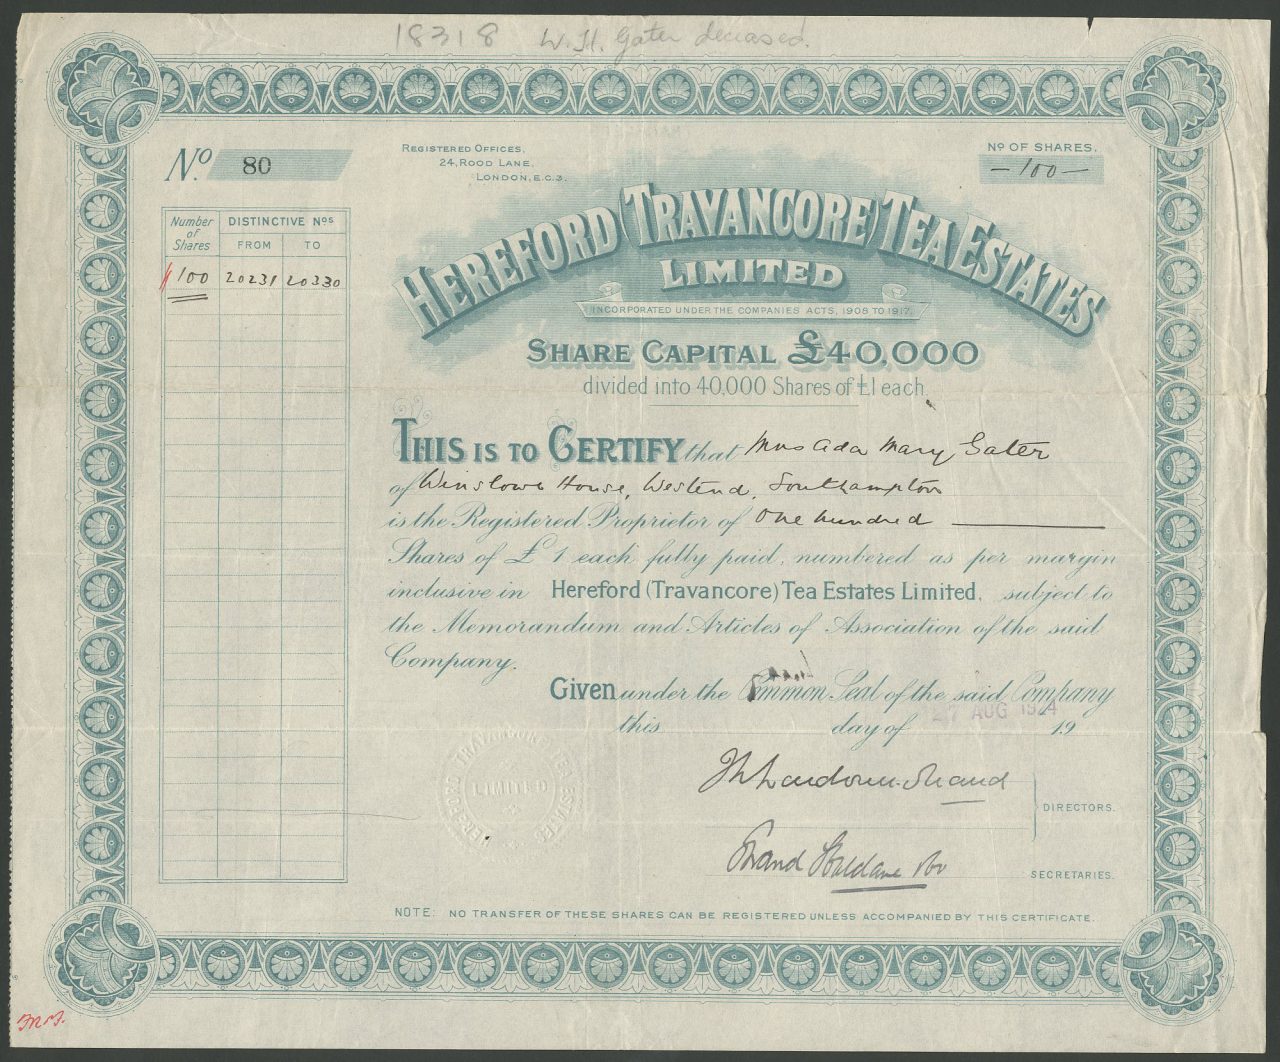 18318 W. H. Gater deceased.
No. 80
REGISTERED OFFICES,
24, ROOD LANE,
LONDON, E.C.3.
No OF SHARES.
—100—
Number of Shares
DISTINCTIVE Nos
FROM TO
100 20231 20330
HEREFORD (TRAVANCORE) TEA ESTATES
LIMITED
INCORPORATED UNDER THE COMPANIES ACTS, 1908 TO 1917.
SHARE CAPITAL £40,000
divided into 40,000 Shares of £1 each.
THIS IS TO CERTIFY that Mrs Ada Mary Gater
of Winslowe House, Westend, Southampton
is the Registered Proprietor of One hundred
Shares of £1 each fully paid, numbered as per margin
inclusive in Hereford (Travancore) Tea Estates Limited, subject to
the Memorandum and Articles of Association of the said
Company.
Given under the Common Seal of the said Company
this day of 19
27 AUG 1924
HEREFORD TRAVANCORE TEA ESTATES
LIMITED
DIRECTORS.
Shand Haldane & Co
SECRETARIES.
NOTE: NO TRANSFER OF THESE SHARES CAN BE REGISTERED UNLESS ACCOMPANIED BY THIS CERTIFICATE.